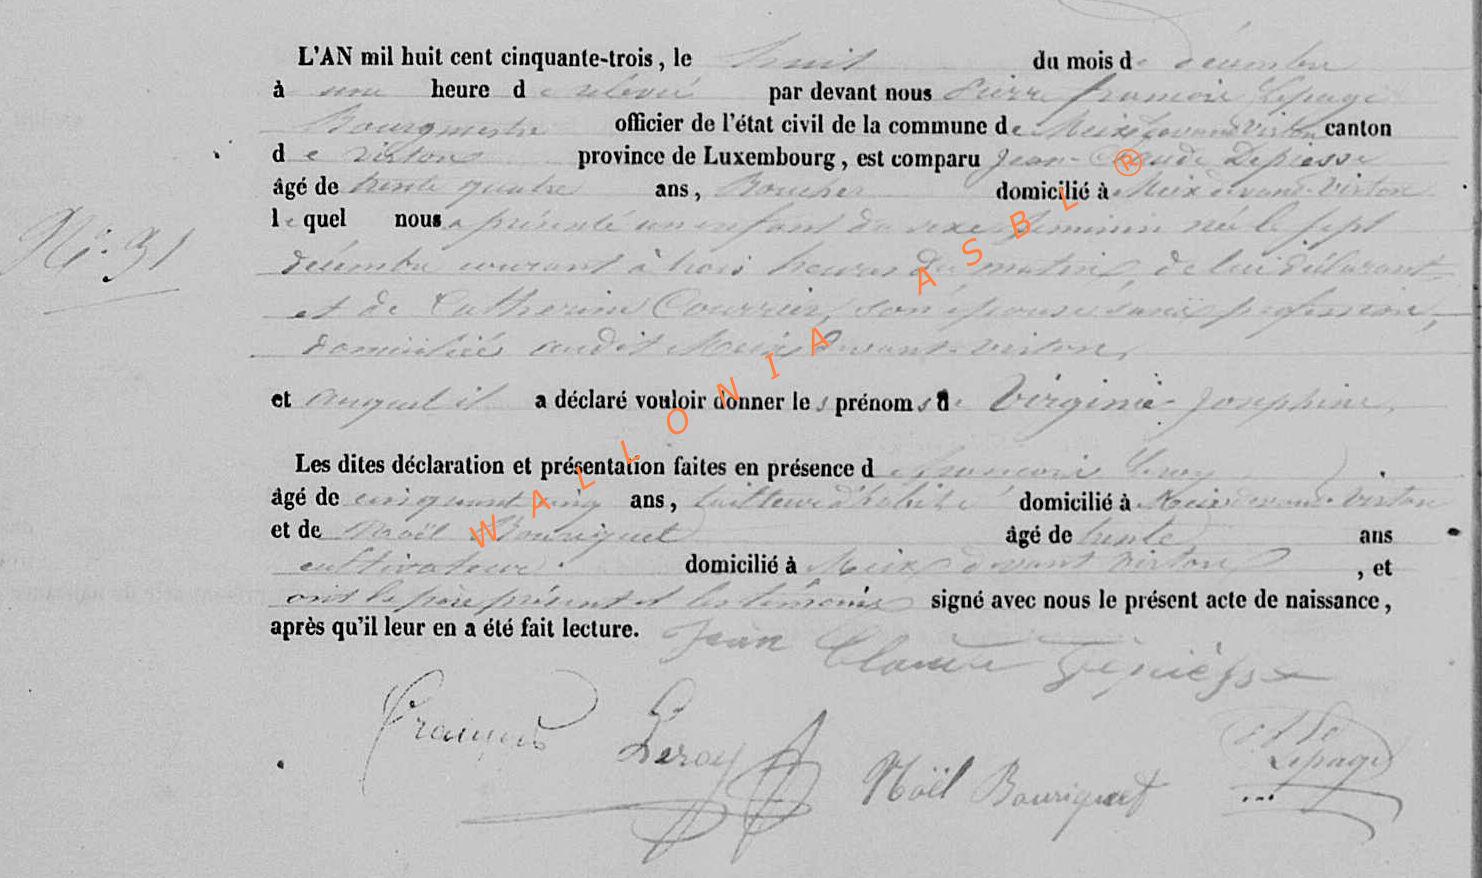 L'AN mil huit cent cinquante-trois, le huit du mois de décembre
à une heure de relevée par devant nous Pierre François Lepage
Bourgmestre officier de l'état civil de la commune de Meix devant Virton canton
de Virton province de Luxembourg, est comparu Jean-Claude Depiesse
âgé de trente quatre ans, Boucher domicilié à Meix devant-Virton
lequel nous a présenté un enfant du sexe féminin née le sept
Nº 31
décembre courant à trois heures du matin, de lui déclarant
et de Catherine Courrier, son épouse sans profession,
domiciliés audit Meix devant-Virton,
et auquel il a déclaré vouloir donner les prénoms de Virginie Josephine
Les dites déclaration et présentation faites en présence de François Leroy
âgé de cinquante cinq ans, tailleur d'habits domicilié à Meix devant-Virton
et de Noël Bouriquet âgé de trente ans
cultivateur domicilié à Meix devant Virton, et
ont le père présent et les témoins signé avec nous le présent acte de naissance,
après qu'il leur en a été fait lecture. Jean Claude
François Leroy Noël Bouriquet Lepage
WALLONIA ASBL ®